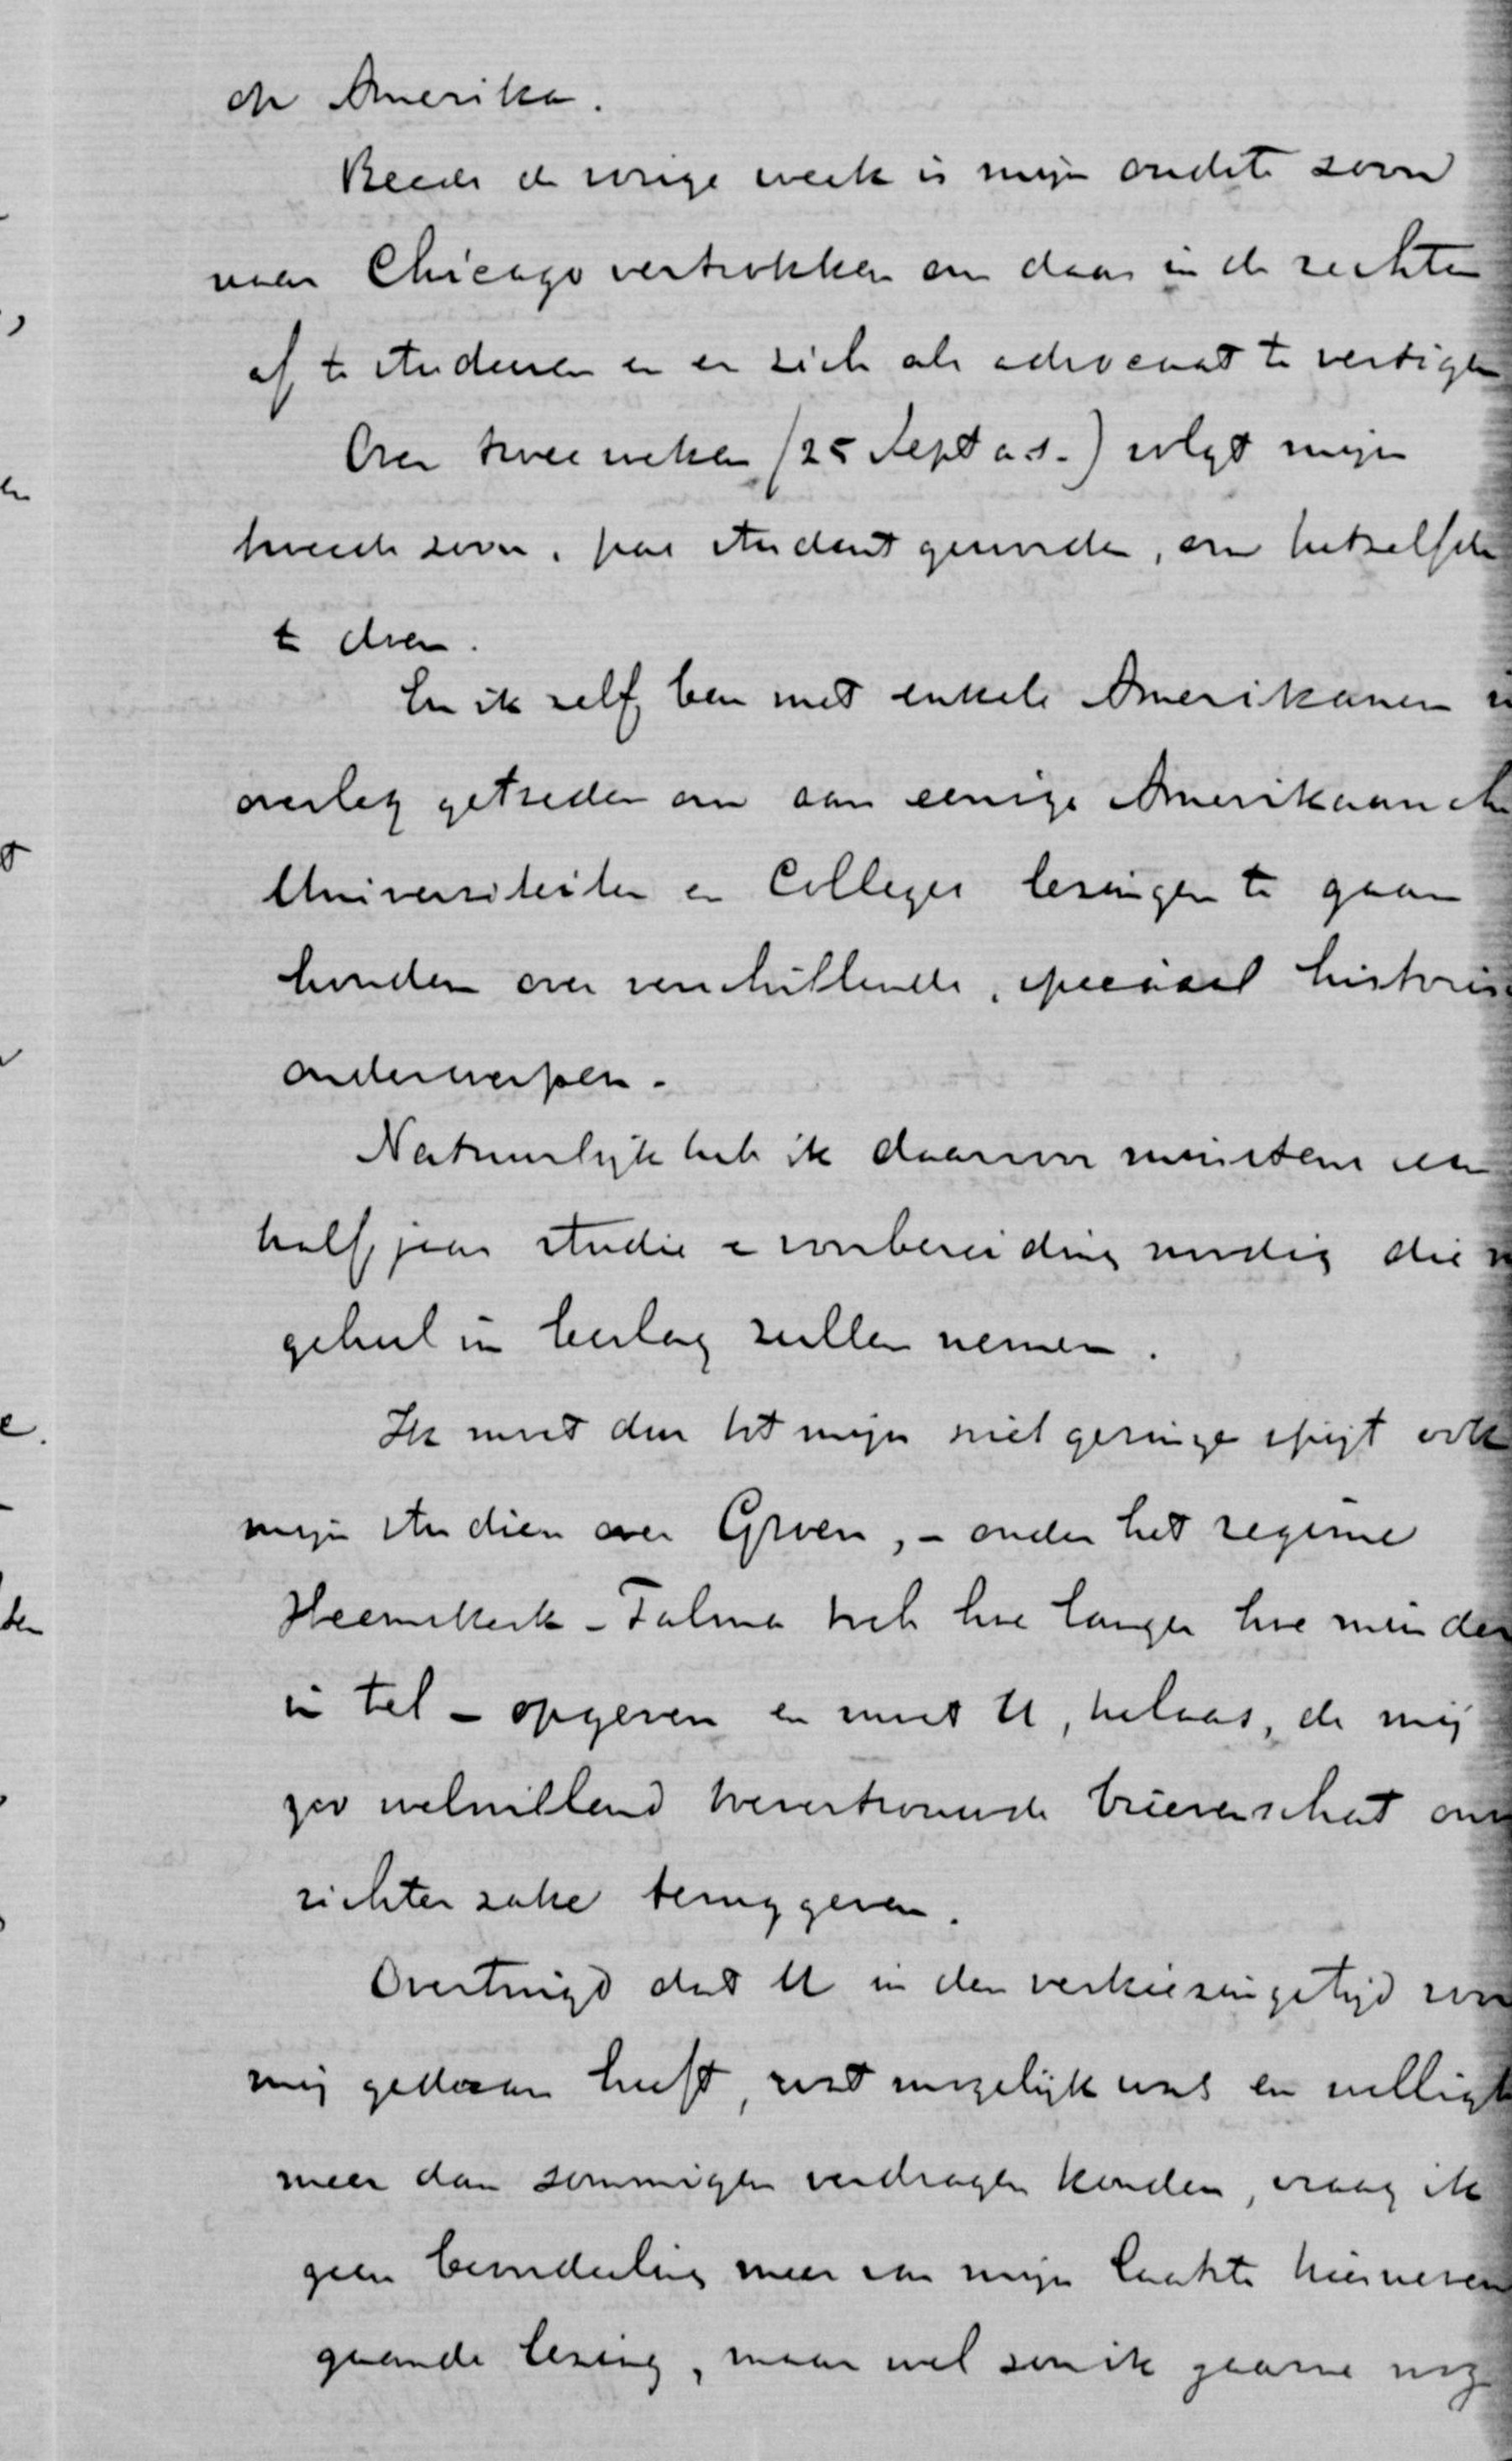 op Amerika.
Reeds de vorige week is mijn oudste zoon
naar Chicago vertrokken om daar in de rechten
af te studeeren en er zich als advocaat te vestigen
Over twee weken (25 Sept a.s.) volgt mijn
tweede zoon, pas student geworden, om hetzelfde
te doen.
En ik zelf ben met enkele Amerikanen in
overleg getreden om aan eenige Amerikaansche
Universiteiten en Colleges lezingen te gaan
houden over verschillende, speciaal historis
onderwerpen.
Natuurlijk heb ik daarvoor minstens een
half jaar studie en voorbereiding noodig die m
geheel in beslag zullen nemen.
Ik moet dus tot mijn niet geringe spijt ook
mijn studien over Groen, - onder het regime
Heemskerk - Talma toch hoe langer hoe minder
in tel - opgeven en moet U, helaas, de mij
zoo welwillend toevertrouwde brievenschat on
richterzake teruggeven.
Overtuigd dat U in den verkiezingstijd voor
mij gedaan heeft, wat mogelijk was en wellicht
meer dan sommigen verdragen konden, vraag ik
geen beoordeeling meer van mijn laatste hiernevens
gaande lezing, maar wel zou ik gaarne nog